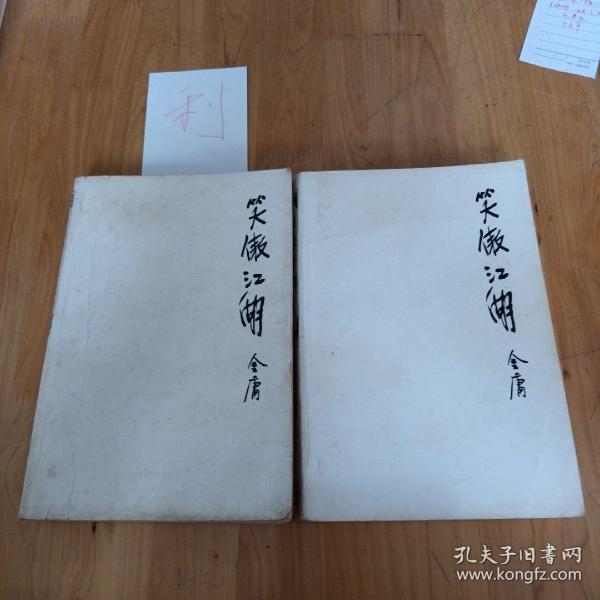 利
笑傲江湖
金庸
笑傲江湖
金庸
孔夫子旧书网
www.kongfz.com